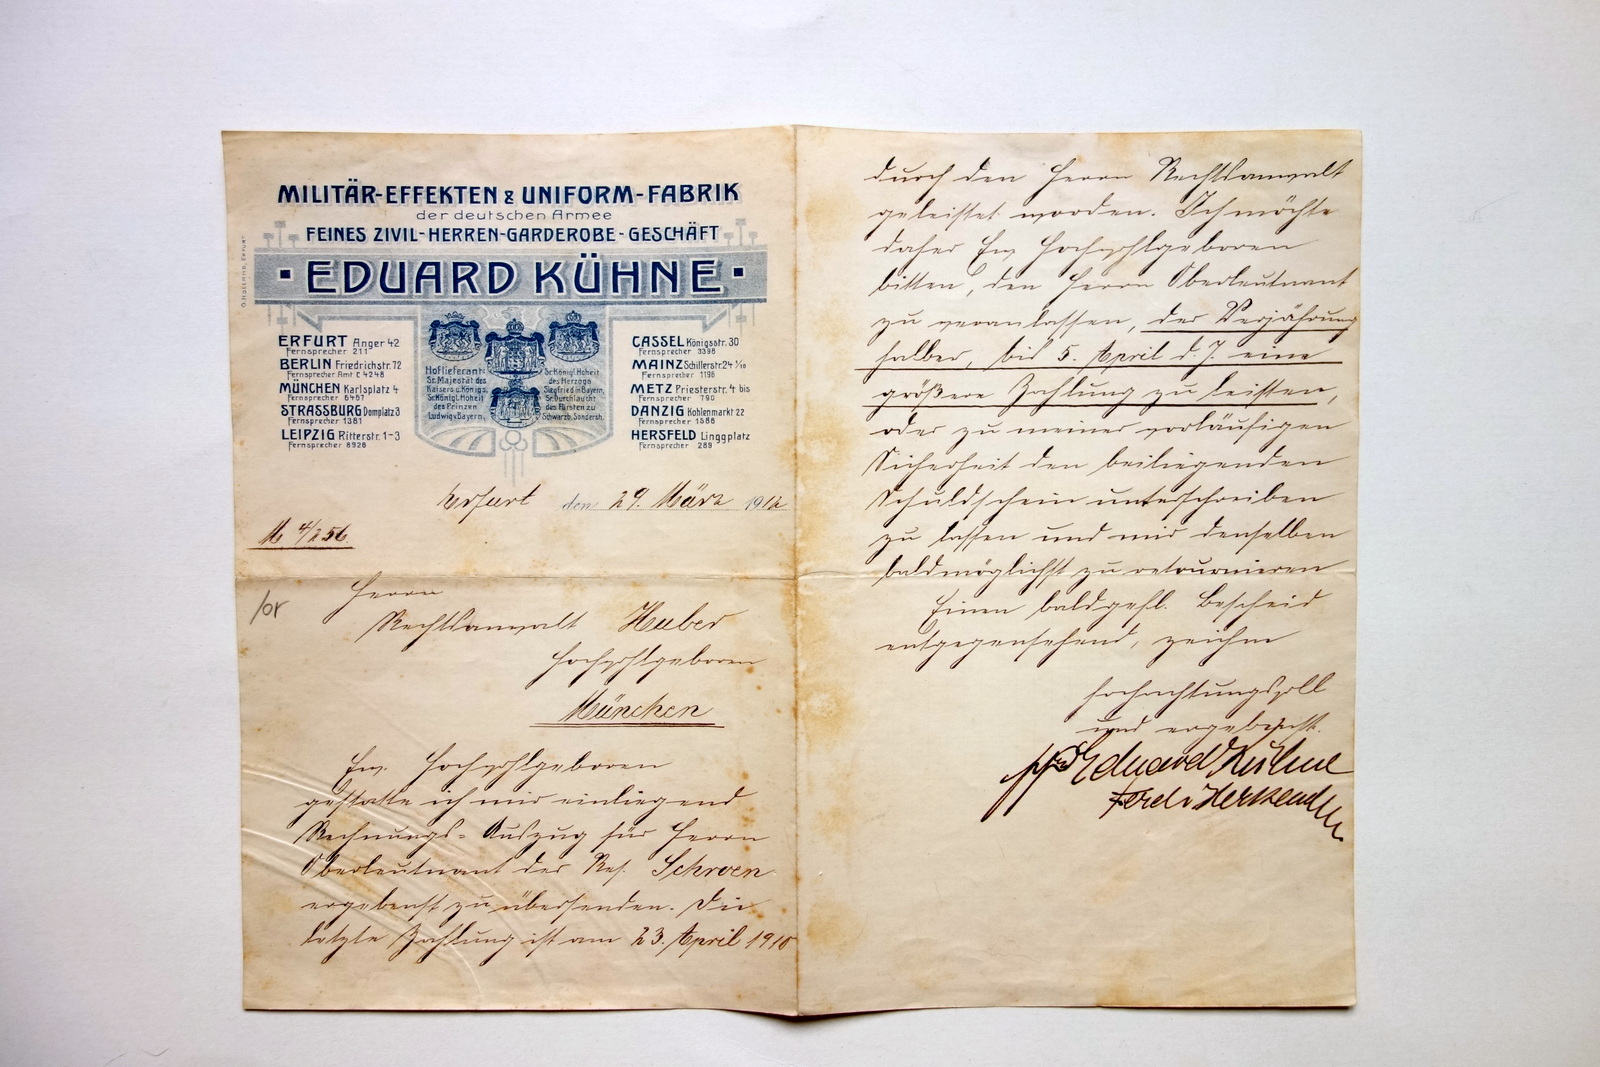 MILITÄR-EFFEKTEN & UNIFORM-FABRIK
der deutschen Armee
FEINES ZIVIL-HERREN-GARDEROBE-GESCHÄFT
· EDUARD KÜHNE ·
ERFURT Anger 42
Fernsprecher 211
BERLIN Friedrichstr. 72
Fernsprecher Amt C 4248
MÜNCHEN Karlsplatz 4
Fernsprecher 6467
STRASSBURG Domplatz 3
Fernsprecher 1381
LEIPZIG Ritterstr. 1-3
Fernsprecher 8928
Hoflieferant:
Sr. Majestät des
Kaisers u. Königs,
Sr. Königl. Hoheit
des Prinzen
Ludwig v. Bayern,
Sr. Königl. Hoheit
des Herzogs
Siegfried in Bayern,
Sr. Durchlaucht
des Fürsten zu
Schwarzb. Sondersh.
CASSEL Königsstr. 30
Fernsprecher 3398
MAINZ Schillerstr. 24 1/10
Fernsprecher 1198
METZ Priesterstr. 4 bis
Fernsprecher 790
DANZIG Kohlenmarkt 22
Fernsprecher 1586
HERSFELD Linggplatz
Fernsprecher 289
Erfurt den 29. März 1912
M 4/256
Herrn
Rechtsanwalt Huber
Hochwohlgeboren
München
Ew. Hochwohlgeboren
gestatte ich mir einliegend
Rechnungs-Auszug für Herrn
Oberleutnant der Res. Schroen
ergebenst zu übersenden. Die
letzte Zahlung ist am 23. April 1910
durch den Herrn Rechtsanwalt
geleistet worden. Ich möchte
daher Ew Hochwohlgeboren
bitten, den Herrn Oberleutnant
zu veranlassen, der Verjährung
halber, bis 5. April d. J. eine
größere Zahlung zu leisten,
oder zu meiner vorläufigen
Sicherheit den beiliegenden
Schuldschein unterschreiben
zu lassen und mir denselben
baldmöglichst zu retournieren
Einen baldgefl. Bescheid
entgegensehend, zeichne
hochachtungsvoll
und ergebenst.
ppa Eduard Kühne
Ferd.